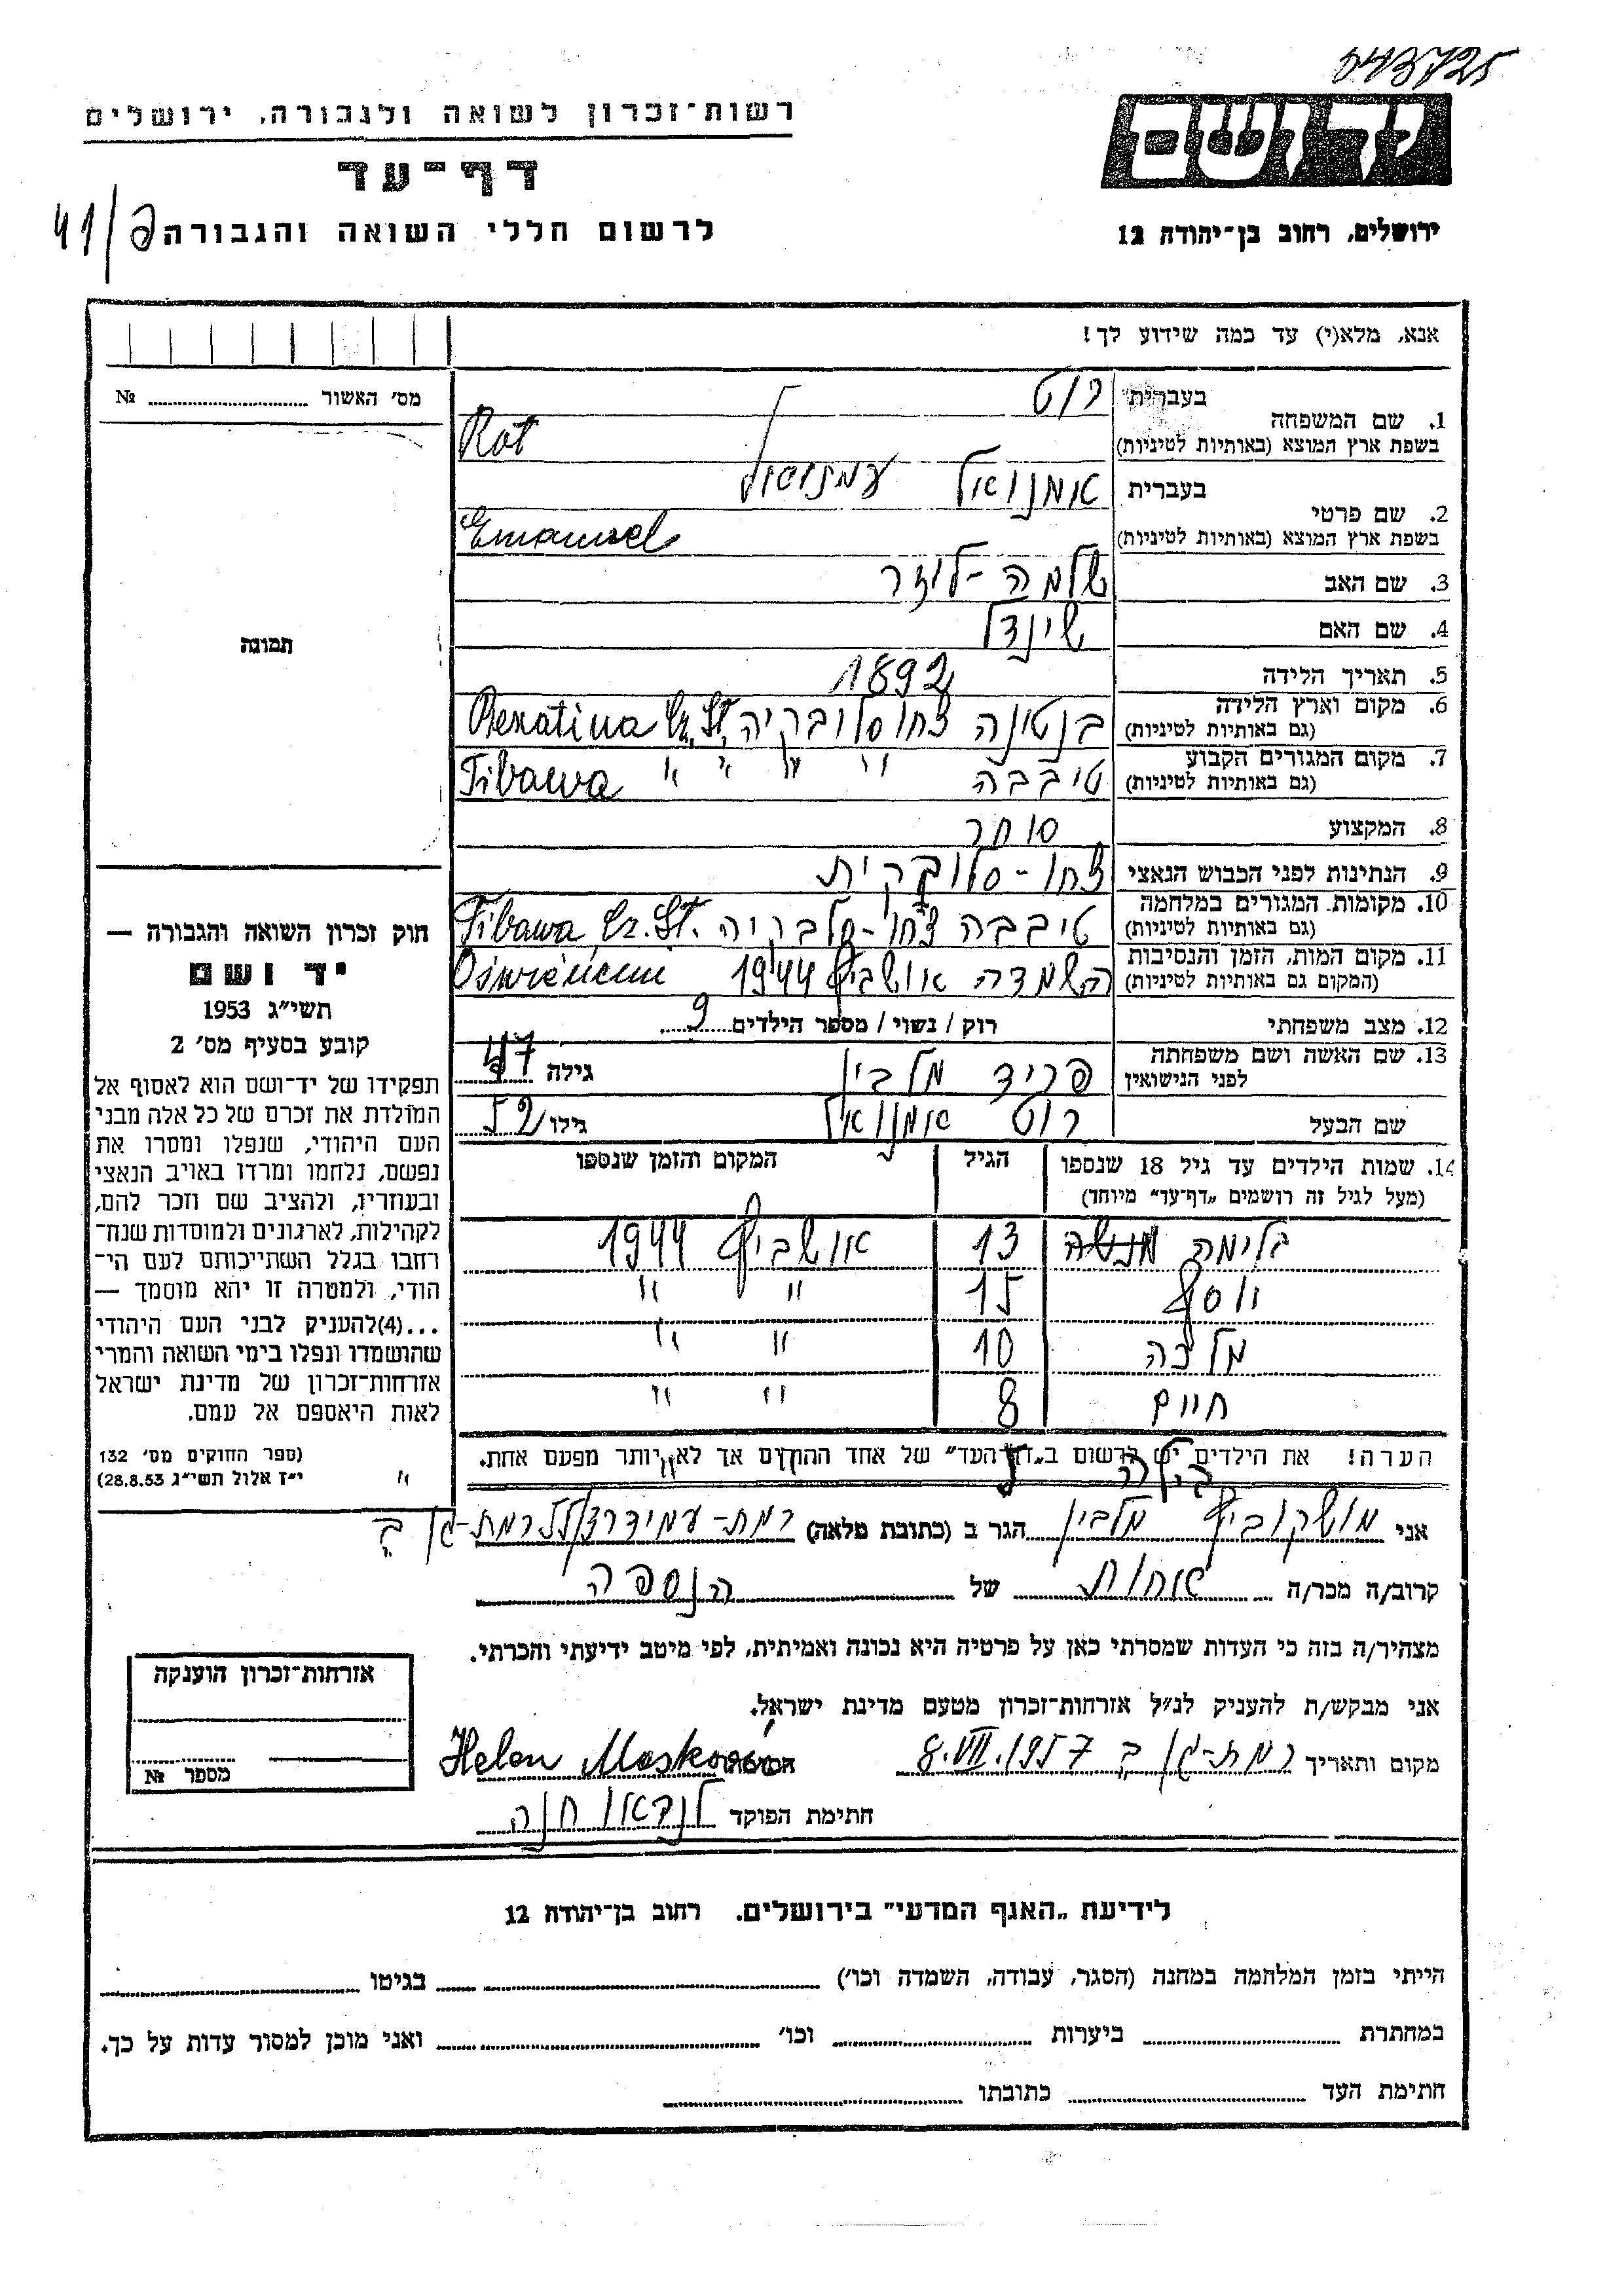 043725
יד ושם
רשות-זכרון לשואה ולגבורה, ירושלים
דף-עד
לרשום חללי השואה והגבורה
41/
ירושלים, רחוב בן-יהודה 12
אנא, מלא(י) עד כמה שידוע לך!
מס' האשור № 
1. שם המשפחה בעברית רוט
בשפת ארץ המוצא (באותיות לטיניות) Rot
2. שם פרטי בעברית אמנואל עמנואל
בשפת ארץ המוצא (באותיות לטיניות) Emanuel
3. שם האב שלמה-לוזר
4. שם האם שינדל
5. תאריך הלידה 1892
6. מקום וארץ הלידה (גם באותיות לטיניות) בנטינה צחוסלובקיה Benatina Cz. St.
7. מקום המגורים הקבוע (גם באותיות לטיניות) טיבבה " " " " Tibawa
8. המקצוע סוחר
9. הנתינות לפני הכבוש הנאצי צחו-סלובקית
10. מקומות המגורים במלחמה (גם באותיות לטיניות) טיבבה צחו-סלבקיה Tibawa Cz. St.
11. מקום המות, הזמן והנסיבות (המקום גם באותיות לטיניות) השמדה אושביץ 1944
12. מצב משפחתי רוק / נשוי / מספר הילדים 9
13. שם האשה ושם משפחתה לפני הנישואין פריד מלבין גילה 47
שם הבעל רוט אמנואל גילו 52
14. שמות הילדים עד גיל 18 שנספו הגיל המקום והזמן שנספו
(מעל לגיל זה רושמים „דף-עד" מיוחד)
בלימה מנשה 13 אושביץ 1944
יוסף 15 " "
מלכה 10 " "
חיים 8 " "
הערה! את הילדים יש לרשום ב„דף העד" של אחד ההורים אך לא יותר מפעם אחת.
תמונה
חוק זכרון השואה והגבורה —
יד ושם
תשי"ג 1953
קובע בסעיף מס' 2
תפקידו של יד-ושם הוא לאסוף אל
המולדת את זכרם של כל אלה מבני
העם היהודי, שנפלו ומסרו את
נפשם, נלחמו ומרדו באויב הנאצי
ובעוזריו, ולהציב שם וזכר להם,
לקהילות, לארגונים ולמוסדות שנח-
רחבו בגלל השתייכותם לעם הי-
הודי, ולמטרה זו יהא מוסמך —
...(4)להעניק לבני העם היהודי
שהושמדו ונפלו בימי השואה והמרי
אזרחות-זכרון של מדינת ישראל
לאות היאספם אל עמם.
(ספר החוקים מס' 132
י"ז אלול תשי"ג 28.8.53)
אני מושקוביץ מלבין הגר ב (כתובת מלאה) רמת-עמידר רמת-גן
קרוב/ה מכר/ה אחות של הנספה
מצהיר/ה בזה כי העדות שמסרתי כאן על פרטיה היא נכונה ואמיתית, לפי מיטב ידיעתי והכרתי.
אני מבקש/ת להעניק לנ"ל אזרחות-זכרון מטעם מדינת ישראל.
מקום ותאריך רמת-גן ב 8.VII.1957 Helen
חתימת הפוקד לנדאו חנה
אזרחות-זכרון הוענקה
מספר №
לידיעת „האגף המדעי" בירושלים. רחוב בן-יהודה 12
הייתי בזמן המלחמה במחנה (הסגר, עבודה, השמדה וכו') בגיטו
במחתרת ביערות וכו' ואני מוכן למסור עדות על כך.
חתימת העד כתובתו